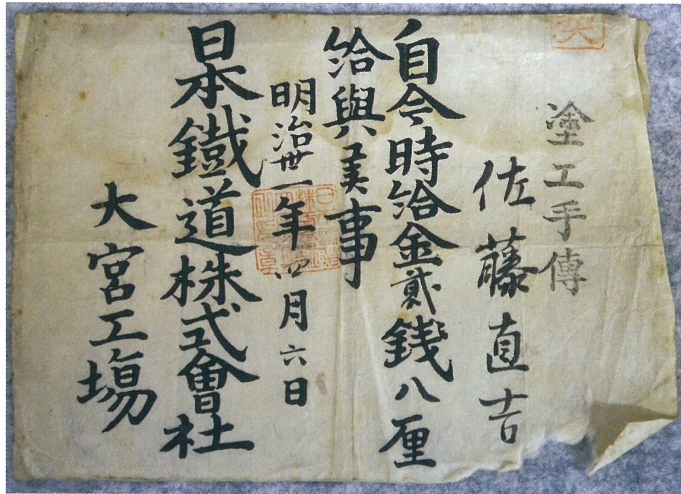 塗工手傳
佐藤直吉
自今時給金貳銭八厘
給與事
明治丗一年四月六日
日本鐵道株式會社
大宮工塲